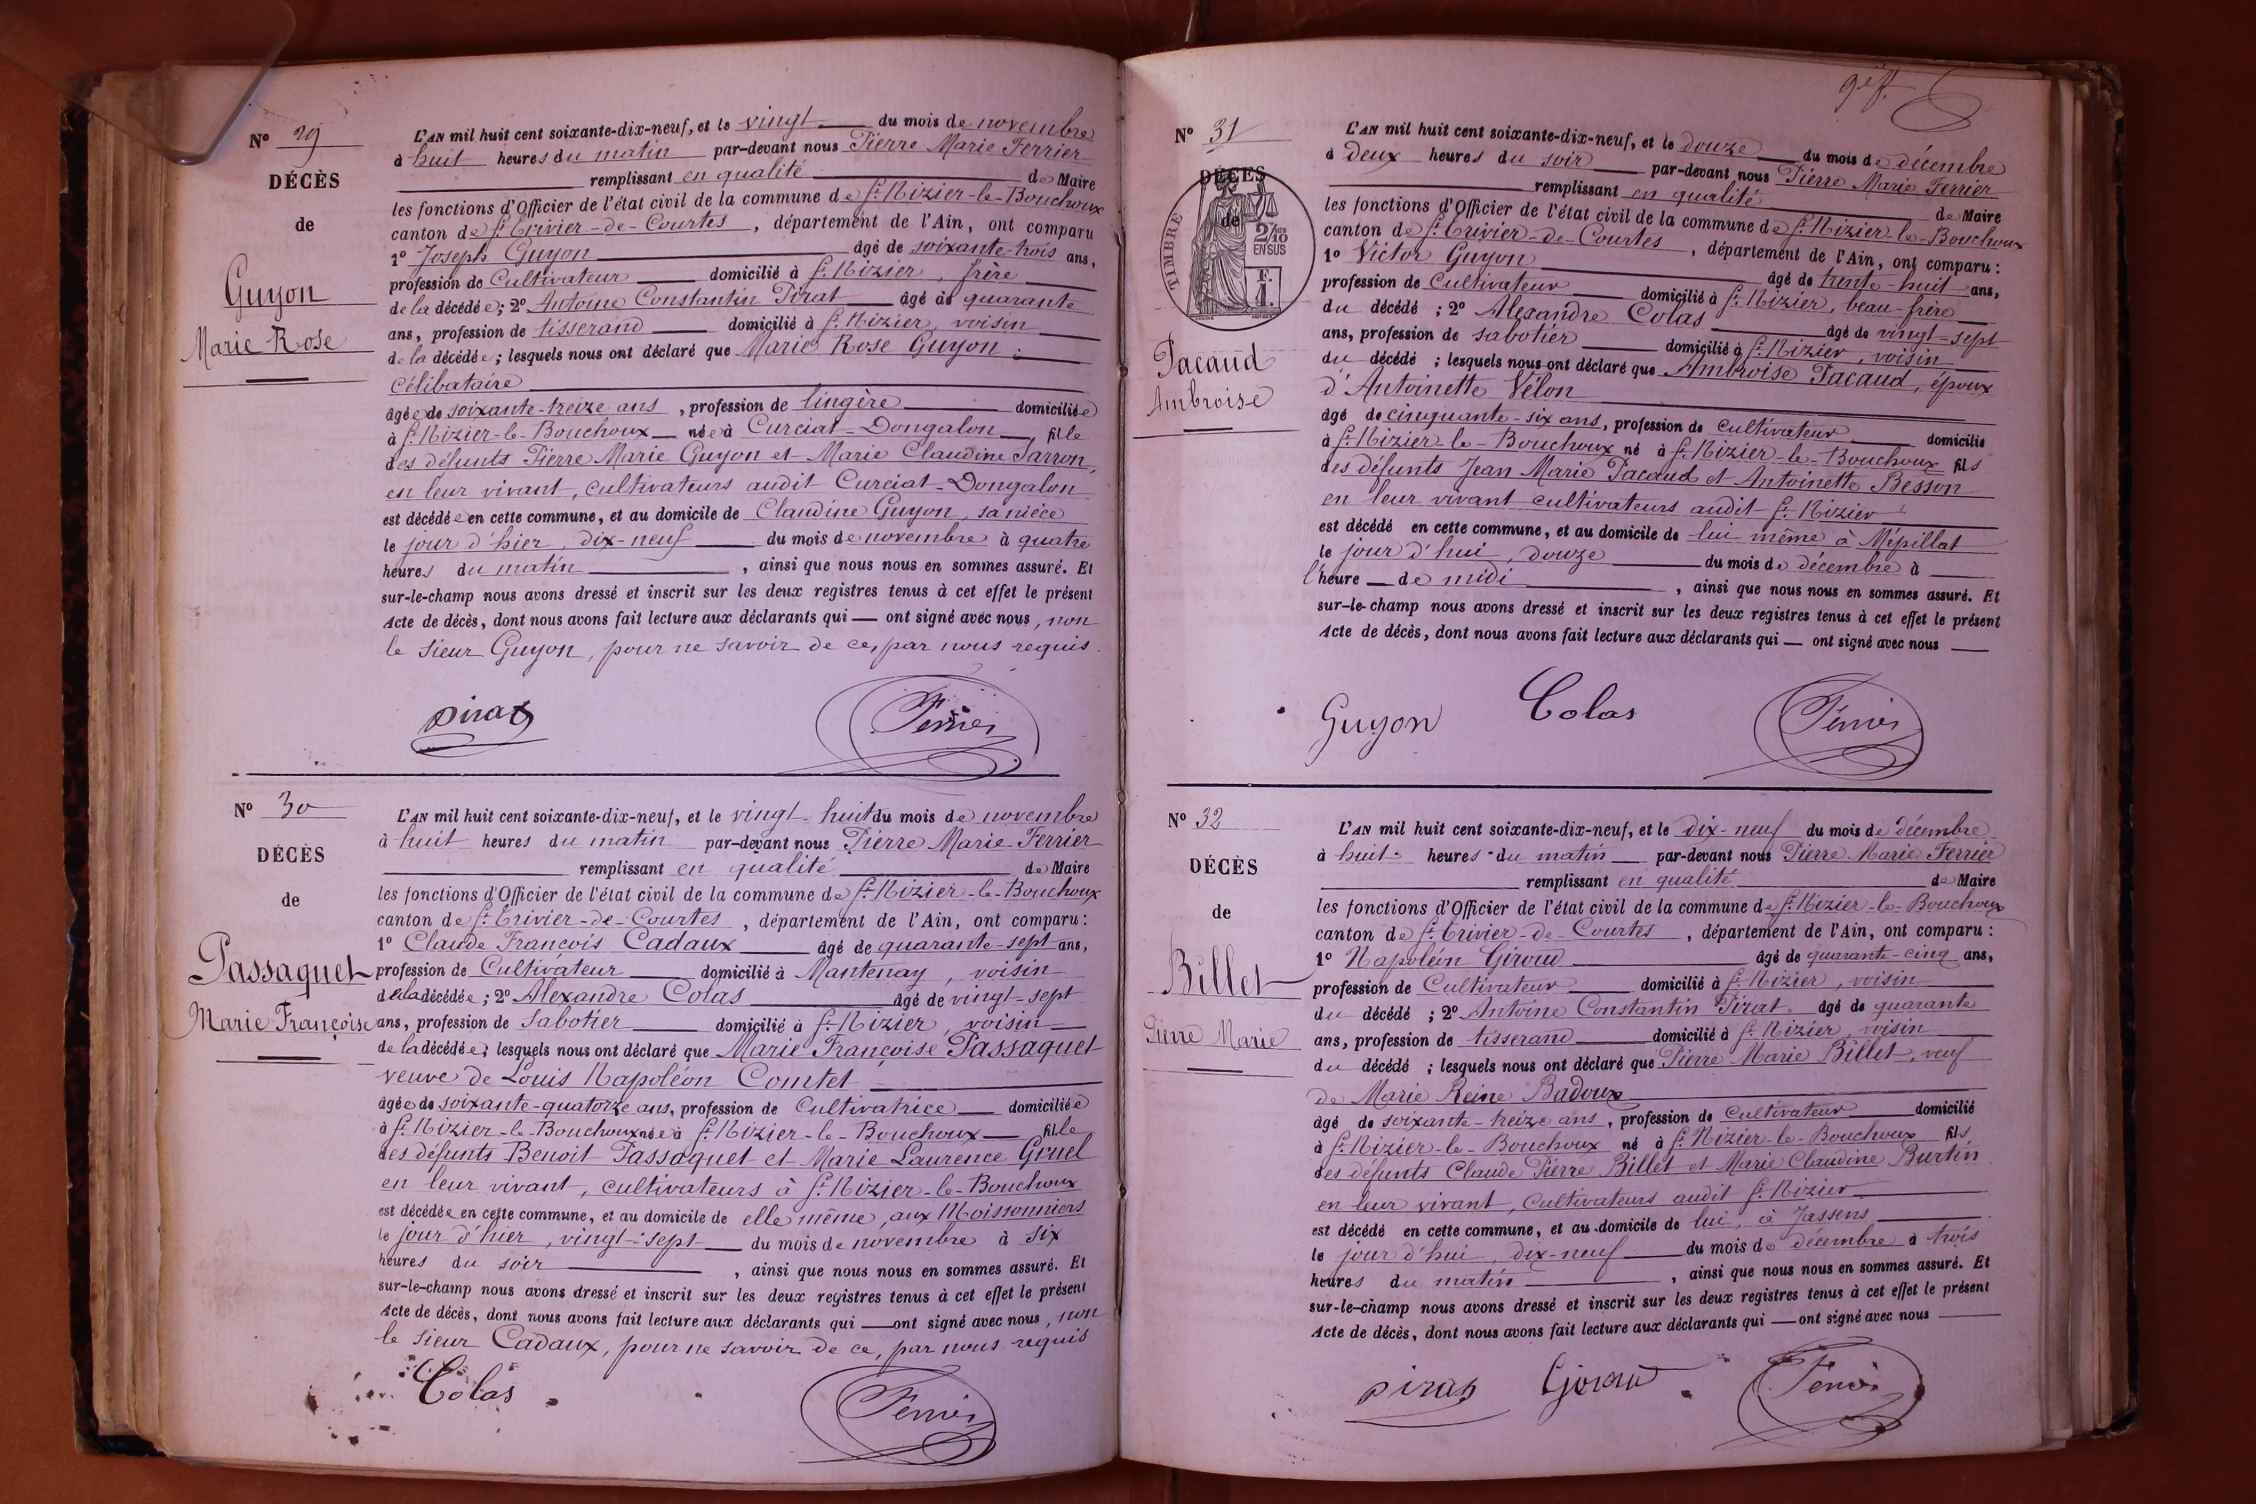 Nº 29
DÉCÈS
de
Guyon
Marie Rose
L'AN mil huit cent soixante-dix-neuf, et le vingt du mois de novembre
à huit heures du matin par-devant nous Pierre Marie Ferrier
remplissant en qualité de Maire
les fonctions d'Officier de l'état civil de la commune de St Nizier-le-Bouchoux
canton de St Trivier-de-Courtes, département de l'Ain, ont comparu
1º Joseph Guyon âgé de soixante-trois ans,
profession de Cultivateur domicilié à St Nizier, frère
de la décédée; 2º Antoine Constantin Pirat âgé de quarante
ans, profession de tisserand domicilié à St Nizier, voisin
de la décédée; lesquels nous ont déclaré que Marie Rose Guyon :
célibataire
âgée de soixante-treize ans, profession de lingère domiciliée
à St Nizier-le-Bouchoux née à Curciat-Dongalon, fille
des défunts Pierre Marie Guyon et Marie Claudine Parron,
en leur vivant, cultivateurs audit Curciat-Dongalon
est décédée en cette commune, et au domicile de Claudine Guyon, sa nièce
le jour d'hier, dix-neuf du mois de novembre à quatre
heures du matin, ainsi que nous nous en sommes assuré. Et
sur-le-champ nous avons dressé et inscrit sur les deux registres tenus à cet effet le présent
Acte de décès, dont nous avons fait lecture aux déclarants qui ont signé avec nous, non
le sieur Guyon, pour ne savoir de ce, par nous requis.
Pirat Ferrier
Nº 30
DÉCÈS
de
Passaquet
Marie Françoise
L'AN mil huit cent soixante-dix-neuf, et le vingt-huit du mois de novembre
à huit heures du matin par-devant nous Pierre Marie Ferrier
remplissant en qualité de Maire
les fonctions d'Officier de l'état civil de la commune de St Nizier-le-Bouchoux
canton de St Trivier-de-Courtes, département de l'Ain, ont comparu :
1º Claude François Cadaux âgé de quarante-sept ans,
profession de Cultivateur domicilié à Mantenay, voisin
de la décédée; 2º Alexandre Colas âgé de vingt-sept
ans, profession de Sabotier domicilié à St Nizier, voisin
de la décédée; lesquels nous ont déclaré que Marie Françoise Passaquet
veuve de Louis Napoléon Comtet
âgée de soixante-quatorze ans, profession de Cultivatrice domiciliée
à St Nizier-le-Bouchoux née à St Nizier-le-Bouchoux fille
des défunts Benoit Passaquet et Marie Laurence Gruel
en leur vivant, cultivateurs à St Nizier-le-Bouchoux
est décédée en cette commune, et au domicile de elle même, aux Moissonniers
le jour d'hier, vingt-sept du mois de novembre à six
heures du soir, ainsi que nous nous en sommes assuré. Et
sur-le-champ nous avons dressé et inscrit sur les deux registres tenus à cet effet le présent
Acte de décès, dont nous avons fait lecture aux déclarants qui ont signé avec nous, non
le sieur Cadaux, pour ne savoir de ce, par nous requis
Colas Ferrier
Nº 31
DÉCÈS
de
TIMBRE
2/10
EN SUS
Pacaud
Ambroise
L'AN mil huit cent soixante-dix-neuf, et le douze du mois de décembre
à deux heures du soir par-devant nous Pierre Marie Ferrier
remplissant en qualité de Maire
les fonctions d'Officier de l'état civil de la commune de St Nizier-le-Bouchoux
canton de St Trivier-de-Courtes, département de l'Ain, ont comparu :
1º Victor Guyon âgé de trente-huit ans,
profession de Cultivateur domicilié à St Nizier, beau-frère
du décédé ; 2º Alexandre Colas âgé de vingt-sept
ans, profession de sabotier domicilié à St Nizier, voisin
du décédé ; lesquels nous ont déclaré que Ambroise Pacaud, époux
d'Antoinette Vélon
âgé de cinquante-six ans, profession de cultivateur domicilié
à St Nizier-le-Bouchoux né à St Nizier-le-Bouchoux fils
des défunts Jean Marie Pacaud et Antoinette Besson
en leur vivant cultivateurs audit St Nizier
est décédé en cette commune, et au domicile de lui même à Mépillat
le jour d'hui, douze du mois de décembre à
l'heure de midi, ainsi que nous nous en sommes assuré. Et
sur-le-champ nous avons dressé et inscrit sur les deux registres tenus à cet effet le présent
Acte de décès, dont nous avons fait lecture aux déclarants qui ont signé avec nous
Guyon Colas Ferrier
Nº 32
DÉCÈS
de
Billet
Pierre Marie
L'AN mil huit cent soixante-dix-neuf, et le dix-neuf du mois de décembre
à huit heures du matin par-devant nous Pierre Marie Ferrier
remplissant en qualité de Maire
les fonctions d'Officier de l'état civil de la commune de St Nizier-le-Bouchoux
canton de St Trivier-de-Courtes, département de l'Ain, ont comparu :
1º Napoléon Giroud âgé de quarante-cinq ans,
profession de Cultivateur domicilié à St Nizier, voisin
du décédé ; 2º Antoine Constantin Pirat âgé de quarante
ans, profession de tisserand domicilié à St Nizier, voisin
du décédé ; lesquels nous ont déclaré que Pierre Marie Billet, veuf
de Marie Reine Badoux
âgé de soixante-treize ans, profession de cultivateur domicilié
à St Nizier-le-Bouchoux né à St Nizier-le-Bouchoux fils
des défunts Claude Pierre Billet et Marie Claudine Burtin
en leur vivant, cultivateurs audit St Nizier
est décédé en cette commune, et au domicile de lui, à Jassens
le jour d'hui, dix-neuf du mois de décembre à trois
heures du matin, ainsi que nous nous en sommes assuré. Et
sur-le-champ nous avons dressé et inscrit sur les deux registres tenus à cet effet le présent
Acte de décès, dont nous avons fait lecture aux déclarants qui ont signé avec nous
Pirat Giroud Ferrier